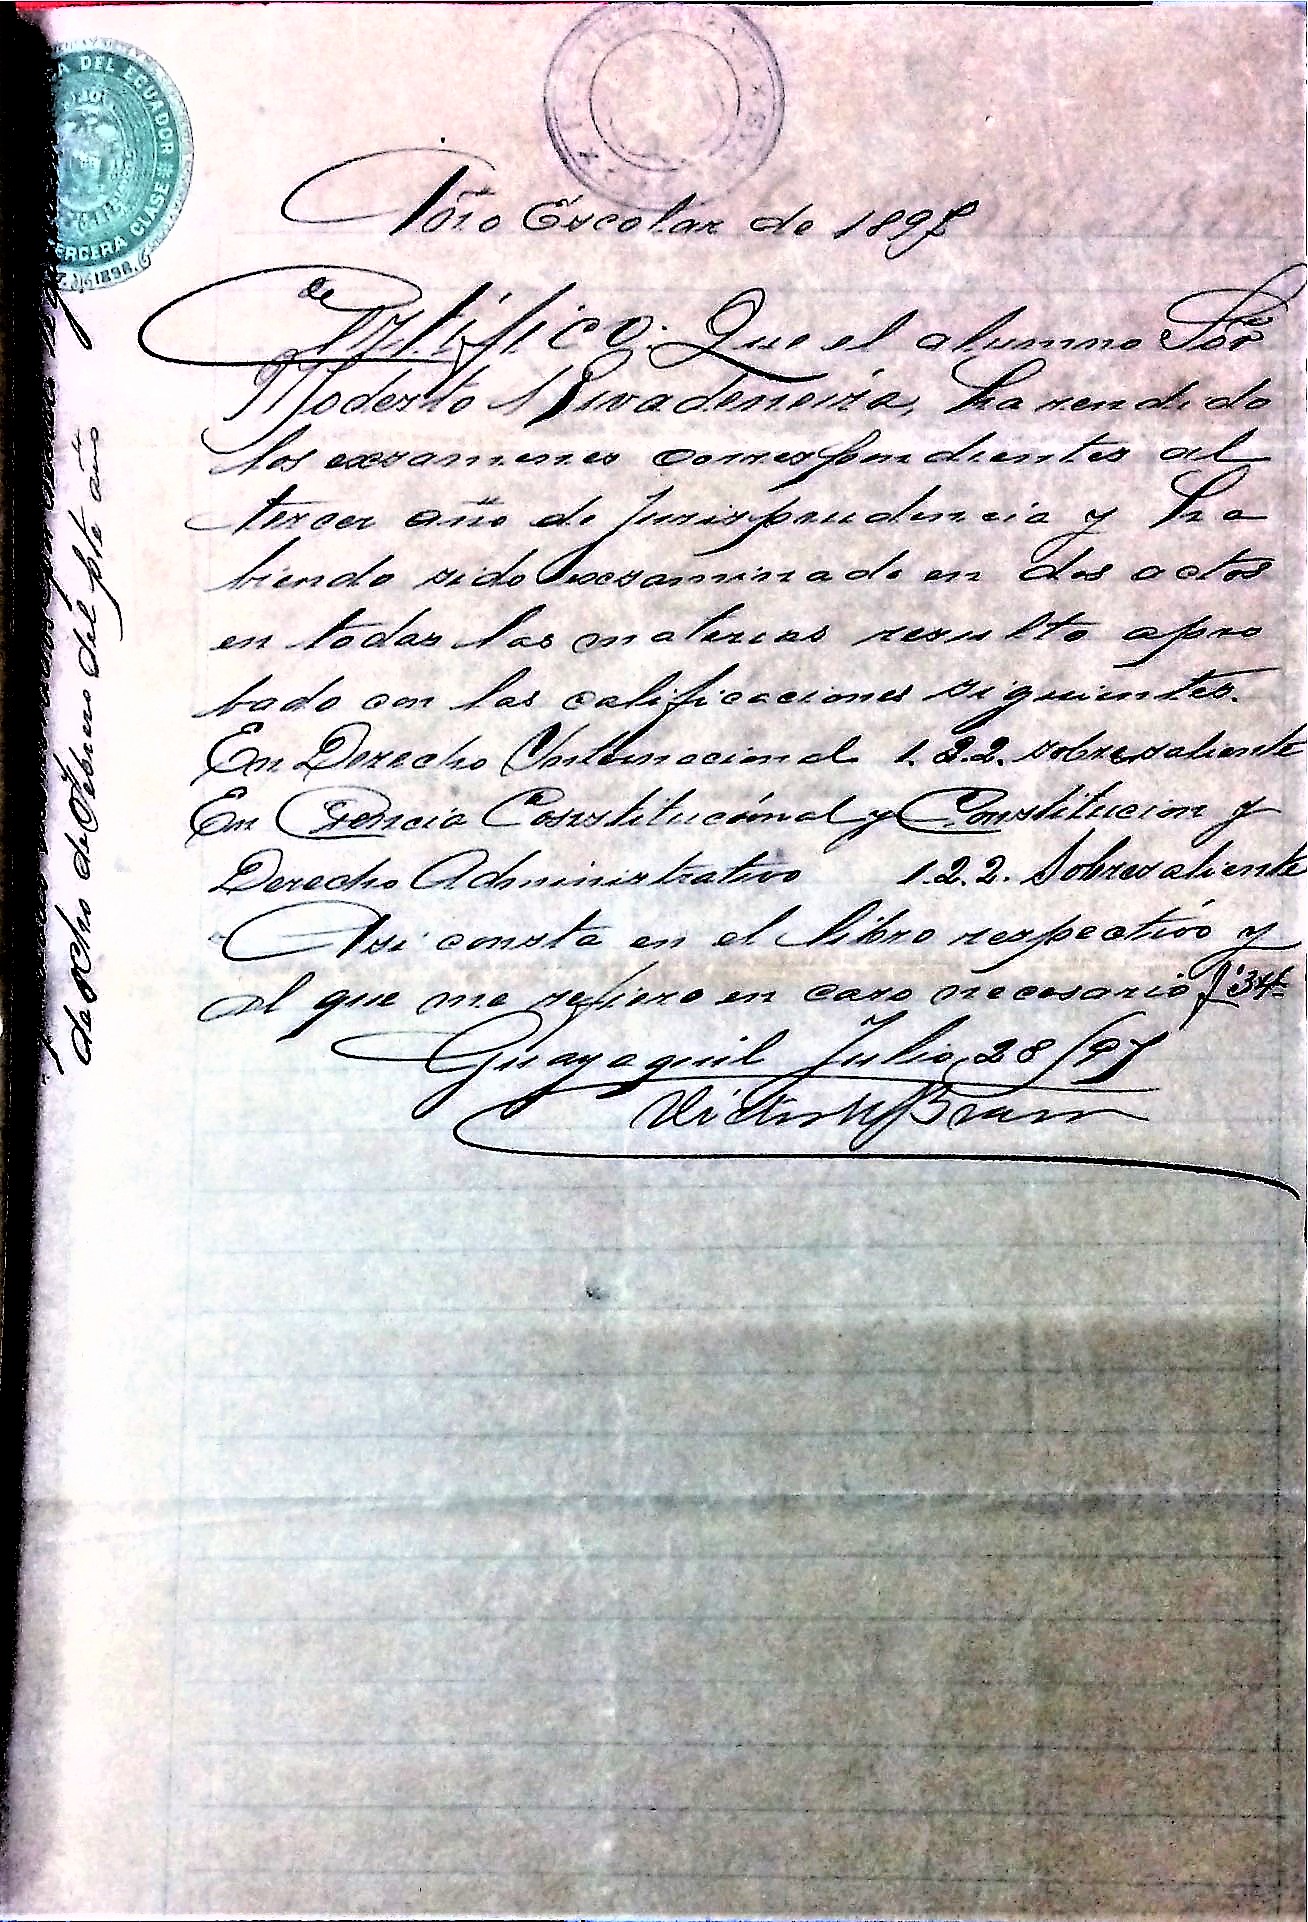 A DEL ECUADOR
TERCERA CLASE
1898
Año Escolar de 1897
Certifico. Que el alumno Sor
Modesto Rivadeneira, ha rendido
los examenes correspondientes al
tercer año de jurisprudencia y ha
biendo sido examinado en dos actos
en todas las materias resulto apro
bado con las calificaciones siguientes.
En Derecho Internacional 1.2.2. sobresaliente
En Ciencia Constitucional y Constitucion y
Derecho Administrativo 1.2.2. Sobresaliente
Asi consta en el libro respectivo y
al que me refiero en caso necesario f. 34
Guayaquil Julio 28/97
de ocho de Febrero del pte año